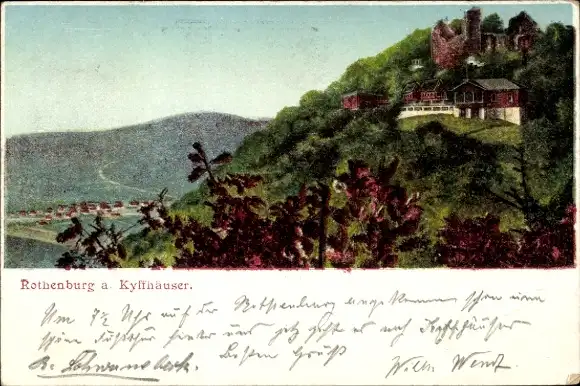 Rothenburg a. Kyffhäuser.
Um 7½ Uhr auf der Rothenburg angekommen schon einen
schönen hinter uns jetz geht es noch Kyffhäuser
Besten Gruß Willy Wendt